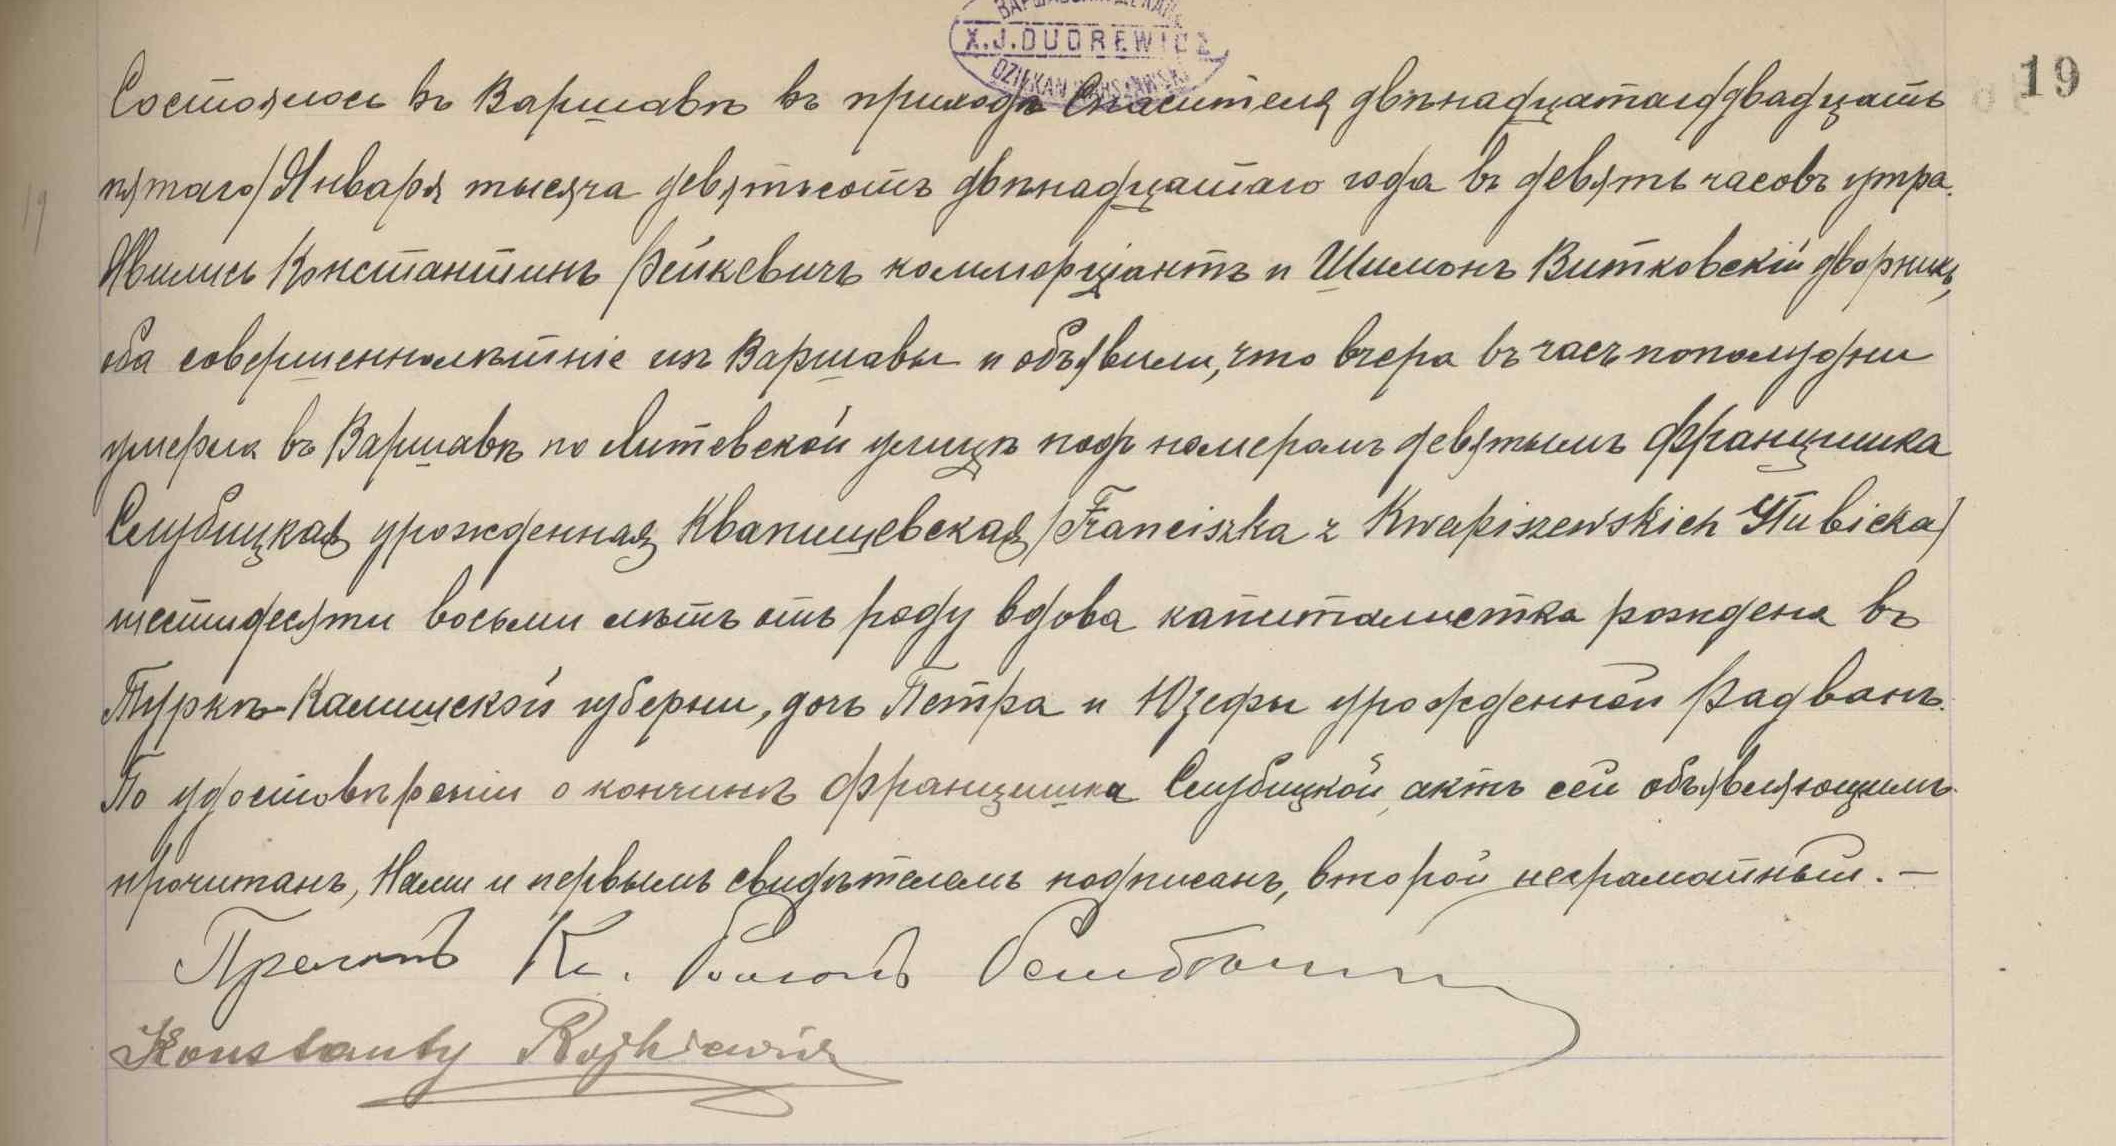 ВАРШАВСКІЙ ДЕКАНЪ
X.J.DUDREWICZ
DZIEKAN WARSZAWSKI
19
19
Состоялось въ Варшавѣ въ приходѣ Спасителя двѣнадцатаго/двадцать
пятаго/Января тысяча девятьсотъ двѣнадцатаго года въ девять часовъ утра.
Явились Константинъ Рейкевичъ коммерціантъ и Шимонъ Витковскій дворникъ,
оба совершеннолѣтніе изъ Варшавы и объявили, что вчера въ часъ пополудни
умерла въ Варшавѣ по Литевской улицѣ подъ номеромъ девятымъ Францишка
Слубицкая урожденная Квапишевская/Franciszka z Kwapiszewskich Słubicka/
шестидесяти восьми лѣтъ отъ роду вдова капиталистка рождена въ
Туркѣ-Калишской губерніи, дочь Петра и Юзефы урожденной Радванъ.
По удостовѣреніи о кончинѣ Францишка Слубицкой, актъ сей объявляющимъ
прочитанъ, Нами и первымъ свидѣтелемъ подписанъ, второй неграмотный. —
Прелатъ Кс.
Konstanty Rejkiewicz